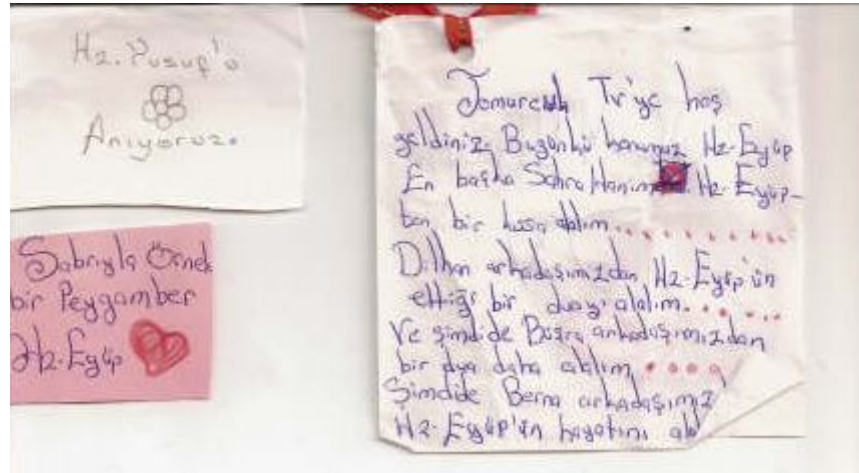 Hz. Yusuf'u
Anıyoruz.
Sabrıyla Örnek
bir Peygamber
Hz. Eyüp
Tomurcuk Tv'ye hoş
geldiniz. Bugünkü konumuz Hz. Eyüp
En başka Hz. Eyüp-
ten bir kıssa alalım........
Dilhan arkadaşımızdan Hz. Eyüp'ün
ettiği bir duayı alalım......
Ve şimdide Büşra arkadaşımızdan
bir dua daha alalım....
Şimdide Berna arkadaşımız
Hz. Eyüp'ün hayatını al